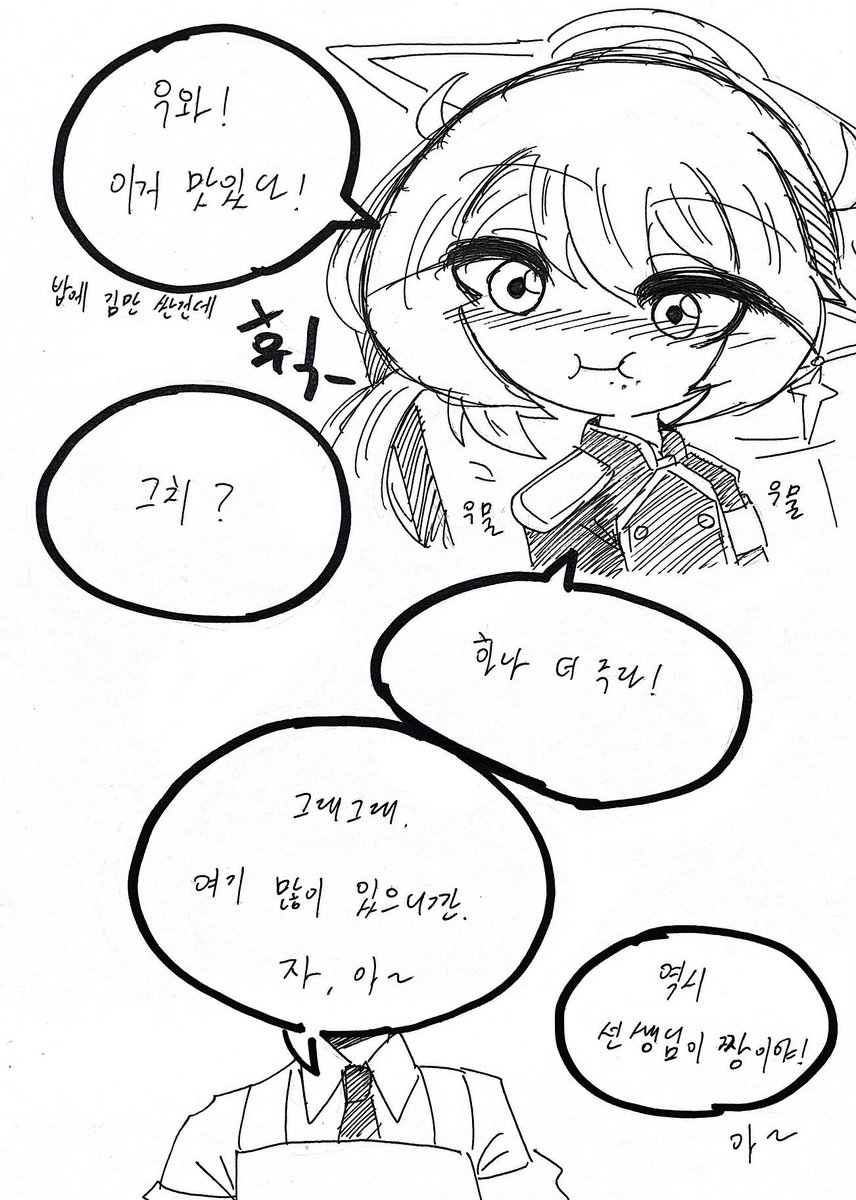 우와!
이거 맛있다!
밥에 김만 싼건데
휙-
그치?
우물
우물
하나 더 주라!
그래그래.
여기 많이 있으니깐.
자, 아~
역시
선생님이 짱이야!
아~